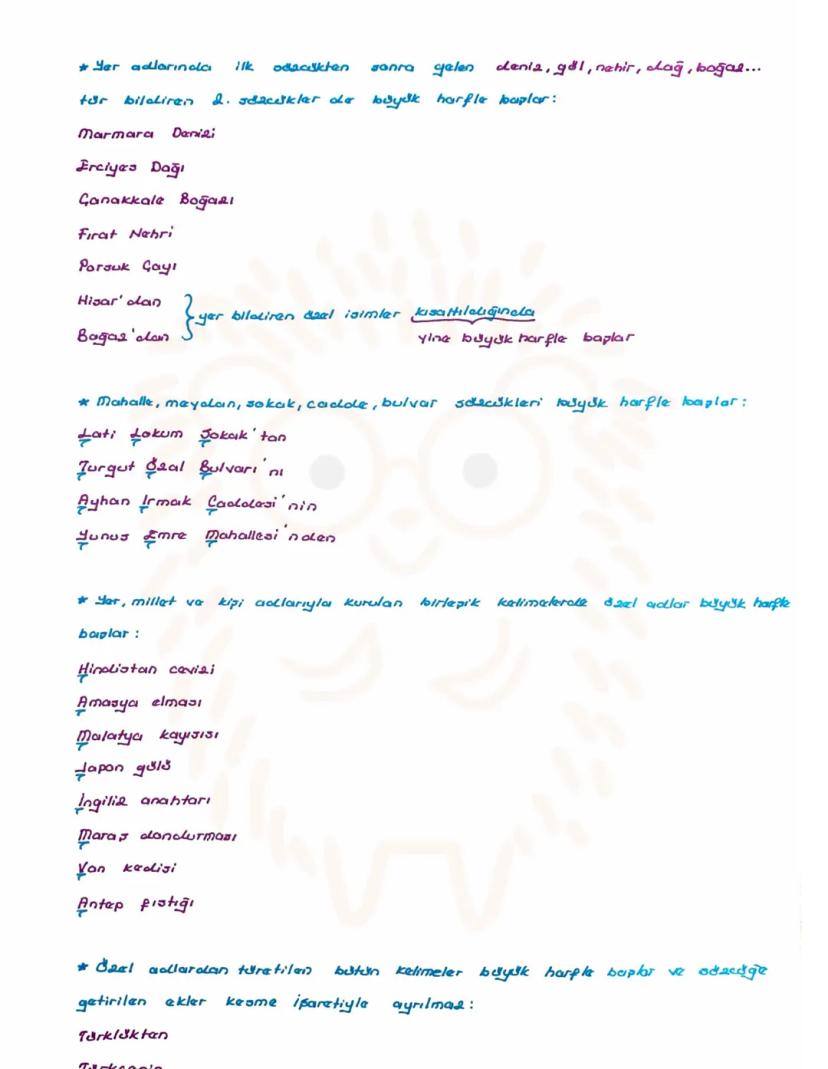 * Yer adlarında ilk sözcükten sonra gelen deniz, göl, nehir, dağ, boğaz...
tür bildiren 2. sözcükler de büyük harfle başlar:
Marmara Denizi
Erciyes Dağı
Çanakkale Boğazı
Fırat Nehri
Porsuk Çayı
Hisar'dan
Boğaz'dan
yer bildiren özel isimler kısaltıldığında
yine büyük harfle başlar
* Mahalle, meydan, sokak, cadde, bulvar sözcükleri büyük harfle başlar:
Lati Lokum Sokak'tan
Turgut Özal Bulvarı'nı
Ayhan Irmak Caddesi'nin
Yunus Emre Mahallesi'nden
* Yer, millet ve kişi adlarıyla kurulan birleşik kelimelerde özel adlar büyük harfle
başlar:
Hindistan cevizi
Amasya elması
Malatya kayısısı
Japon gülü
İngiliz anahtarı
Maraş dondurması
Van kedisi
Antep fıstığı
* Özel adlardan türetilen bütün kelimeler büyük harfle başlar ve sözcüğe
getirilen ekler kesme işaretiyle ayrılmaz:
Türklükten